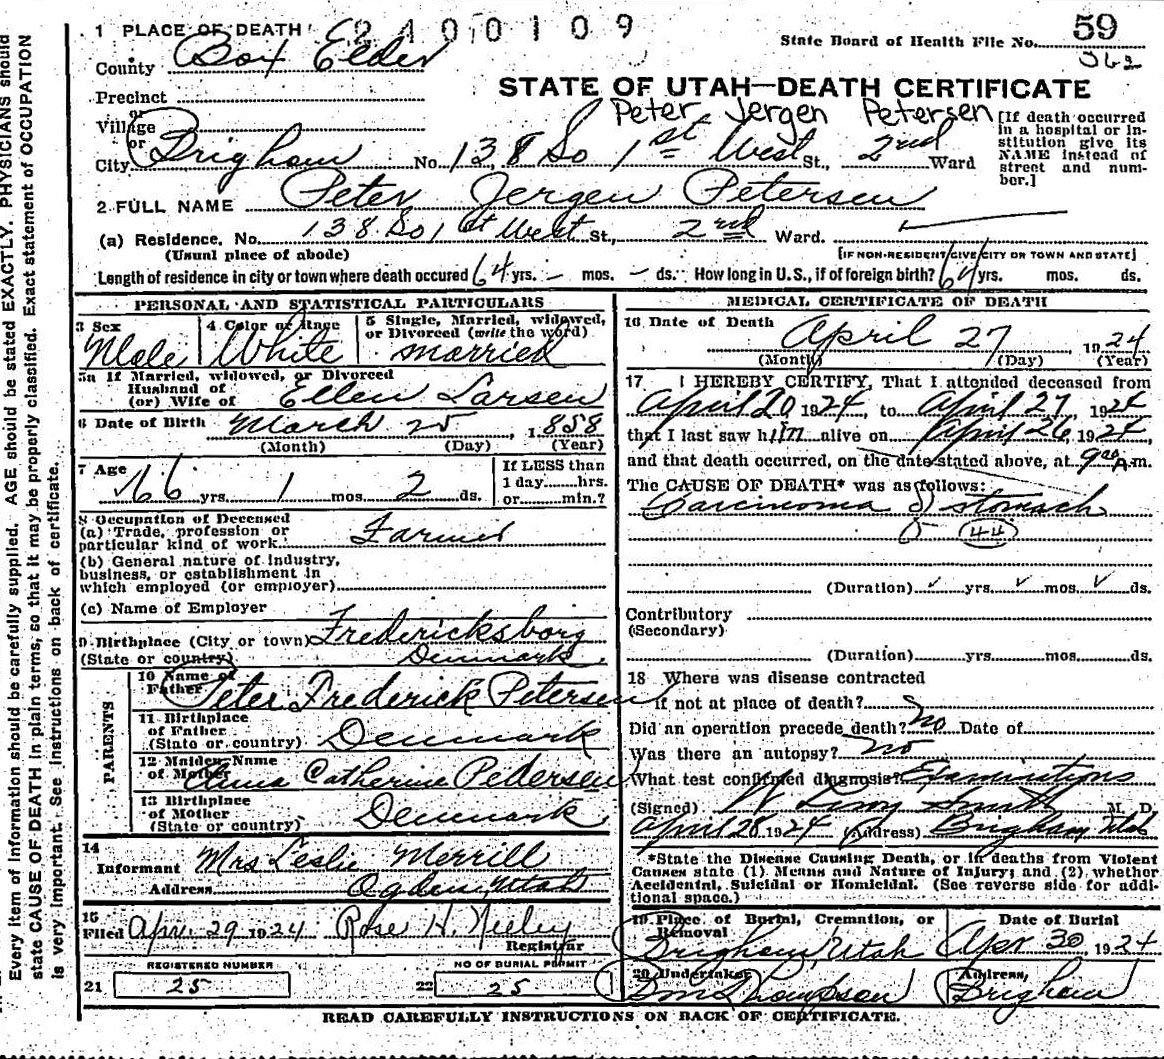 1 PLACE OF DEATH 2400109
59
State Board of Health File No.
362
County Box Elder
STATE OF UTAH—DEATH CERTIFICATE
Precinct
Peter Jergen Petersen
or
Village
or
City Brigham No. 138 So 1st West St., 2nd Ward
[If death occurred in a hospital or institution give its NAME instead of street and number.]
2 FULL NAME Peter Jergen Petersen
(a) Residence. No. 138 So 1st West St., 2nd Ward.
(Usual place of abode) [IF NON-RESIDENT GIVE CITY OR TOWN AND STATE]
Length of residence in city or town where death occured 64 yrs. – mos. – ds. How long in U.S., if of foreign birth? 64 yrs. mos. ds.
PERSONAL AND STATISTICAL PARTICULARS
3 Sex Male
4 Color or Race White
5 Single, Married, widowed, or Divorced (write the word) married
5a If Married, widowed, or Divorced
Husband of
(or) Wife of Ellen Larsen
6 Date of Birth March 25, 1858
(Month) (Day) (Year)
7 Age 66 yrs. 1 mos. 2 ds.
If LESS than
1 day hrs.
or min.?
8 Occupation of Deceased
(a) Trade, profession or
particular kind of work. Farmer
(b) General nature of Industry,
business, or establishment in
which employed (or employer)
(c) Name of Employer
9 Birthplace (City or town) Fredericksborg
(State or country) Denmark
PARENTS
10 Name of
Father Peter Frederick Petersen
11 Birthplace
of Father
(State or country) Denmark
12 Maiden Name
of Mother Anna Catherine Pedersen
13 Birthplace
of Mother
(State or country) Denmark
14
Informant Mrs Leslie Merrill
Address Ogden, Utah
15
Filed Apr. 29 1924 Rose H. Neeley
Registrar
REGISTERED NUMBER NO OF BURIAL PERMIT
21 25 22 25
MEDICAL CERTIFICATE OF DEATH
16 Date of Death
April 27 1924
(Month) (Day) (Year)
17 I HEREBY CERTIFY, That I attended deceased from
April 20 1924, to April 27 1924
that I last saw him alive on April 26, 1924,
and that death occurred, on the date stated above, at 9 00 A.m.
The CAUSE OF DEATH* was as follows:
Carcinoma of stomach
44
(Duration) yrs. mos. ds.
Contributory
(Secondary)
(Duration) yrs. mos. ds.
18 Where was disease contracted
if not at place of death?
Did an operation precede death? no Date of
Was there an autopsy? no
What test confirmed diagnosis? Examinations
(Signed) W Leroy Smith M. D.
April 28 1924 (Address) Brigham Utah
*State the Disease Causing Death, or in deaths from Violent
Causes state (1) Means and Nature of Injury; and (2) whether
Accidental, Suicidal or Homicidal. (See reverse side for addi-
tional space.)
19 Place of Burial, Cremation, or Removal Date of Burial
Brigham, Utah Apr 30 1924
20 Undertaker Address,
Don Thompson Brigham
READ CAREFULLY INSTRUCTIONS ON BACK OF CERTIFICATE.
Every item of Information should be carefully supplied. AGE should be stated EXACTLY. PHYSICIANS should
state CAUSE OF DEATH in plain terms, so that it may be properly classified. Exact statement of OCCUPATION
is very important. See instructions on back of certificate.